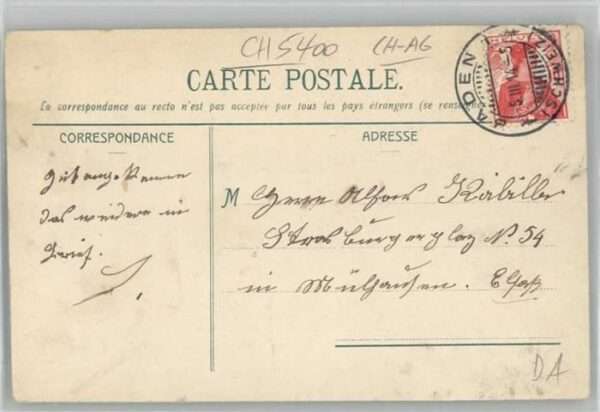 CH 5400 CH-AG
CARTE POSTALE.
La correspondance au recto n'est pas acceptée par tous les pays étrangers (se rensei
BADEN
SCHWEIZ
CORRESPONDANCE
ADRESSE
Gut angekommen
das weitere in
Brief.
M Herrn Alfons
Strasburgerplaz No. 54
in Mülhausen. Elsaß
DA